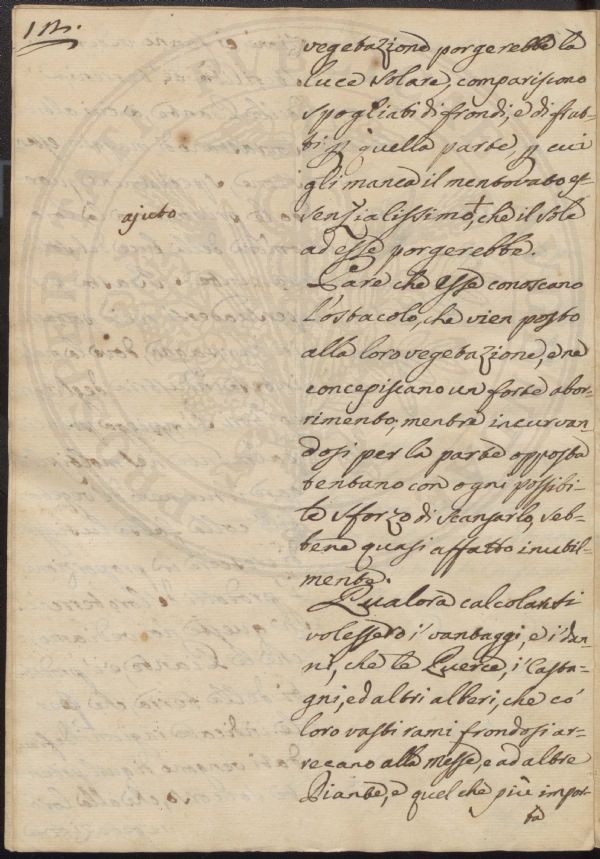 112.
vegetazione porgerebbe la
luce solare, compariscono
spogliati di frondi, e di frut-
ti p quella parte p cui
gli manca il mentovato es-
senzialissimo+, che il sole
ajuto
ad esse porgerebbe.
Pare che esse conoscano
l'ostacolo, che vien posto
alla loro vegetazione, e ne
concepiscano un forte abor-
rimento, mentre incurvan-
dosi per la parte opposta
tentano con ogni possibi-
le sforzo di scansarlo, seb-
bene quasi affatto inutil-
mente.
Qualora calcolar si
volessero i vantaggi, e i dan-
ni, che le Querce, i Casta-
gni, ed altri alberi, che co'
loro vasti rami frondosi ar-
recano alla messe, e ad altre
Piante, e quel che più impor-
ta